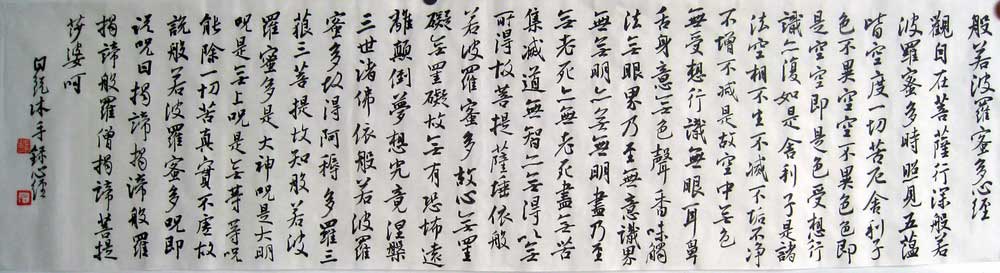 般若波羅蜜多心經
觀自在菩薩行深般若
波羅蜜多時照見五蘊
皆空度一切苦厄舍利子
色不異空空不異色色即
是空空即是色受想行
識亦復如是舍利子是諸
法空相不生不滅不垢不净
不增不减是故空中无色
無受想行識無眼耳鼻
舌身意无色聲香味觸
法无眼界乃至無意識界
無無明亦无無明盡乃至
无老死亦无老死盡无苦
集滅道無智亦无得以无
所得故菩提薩埵依般
若波羅蜜多故心无罣
礙无罣礙故无有恐怖遠
離顛倒夢想究竟涅槃
三世諸佛依般若波羅
蜜多故得阿耨多羅三
藐三菩提故知般若波
羅蜜多是大神呪是大明
呪是无上呪是无等等呪
能除一切苦真實不虛故
說般若波羅蜜多呪即
說呪曰揭諦揭諦般羅
揭諦般羅僧揭諦菩提
莎婆呵
沐手録心經